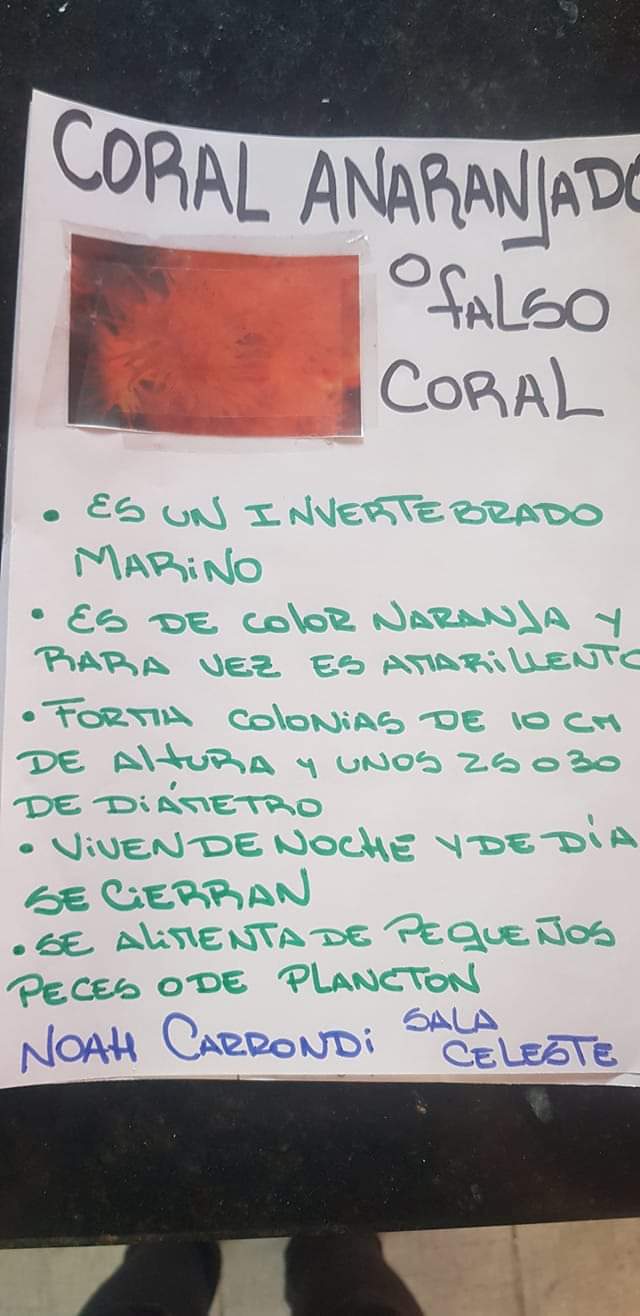 CORAL ANARANJADO
O FALSO
CORAL
• ES UN INVERTEBRADO
MARINO
• ES DE COLOR NARANJA Y
RARA VEZ ES AMARILLENTO
• FORMA COLONIAS DE 10 CM
DE ALTURA Y UNOS 25 O 30
DE DIÁMETRO
• VIVEN DE NOCHE Y DE DÍA
SE CIERRAN
• SE ALIMENTA DE PEQUEÑOS
PECES O DE PLANCTON
NOAH CARRONDI SALA
CELESTE